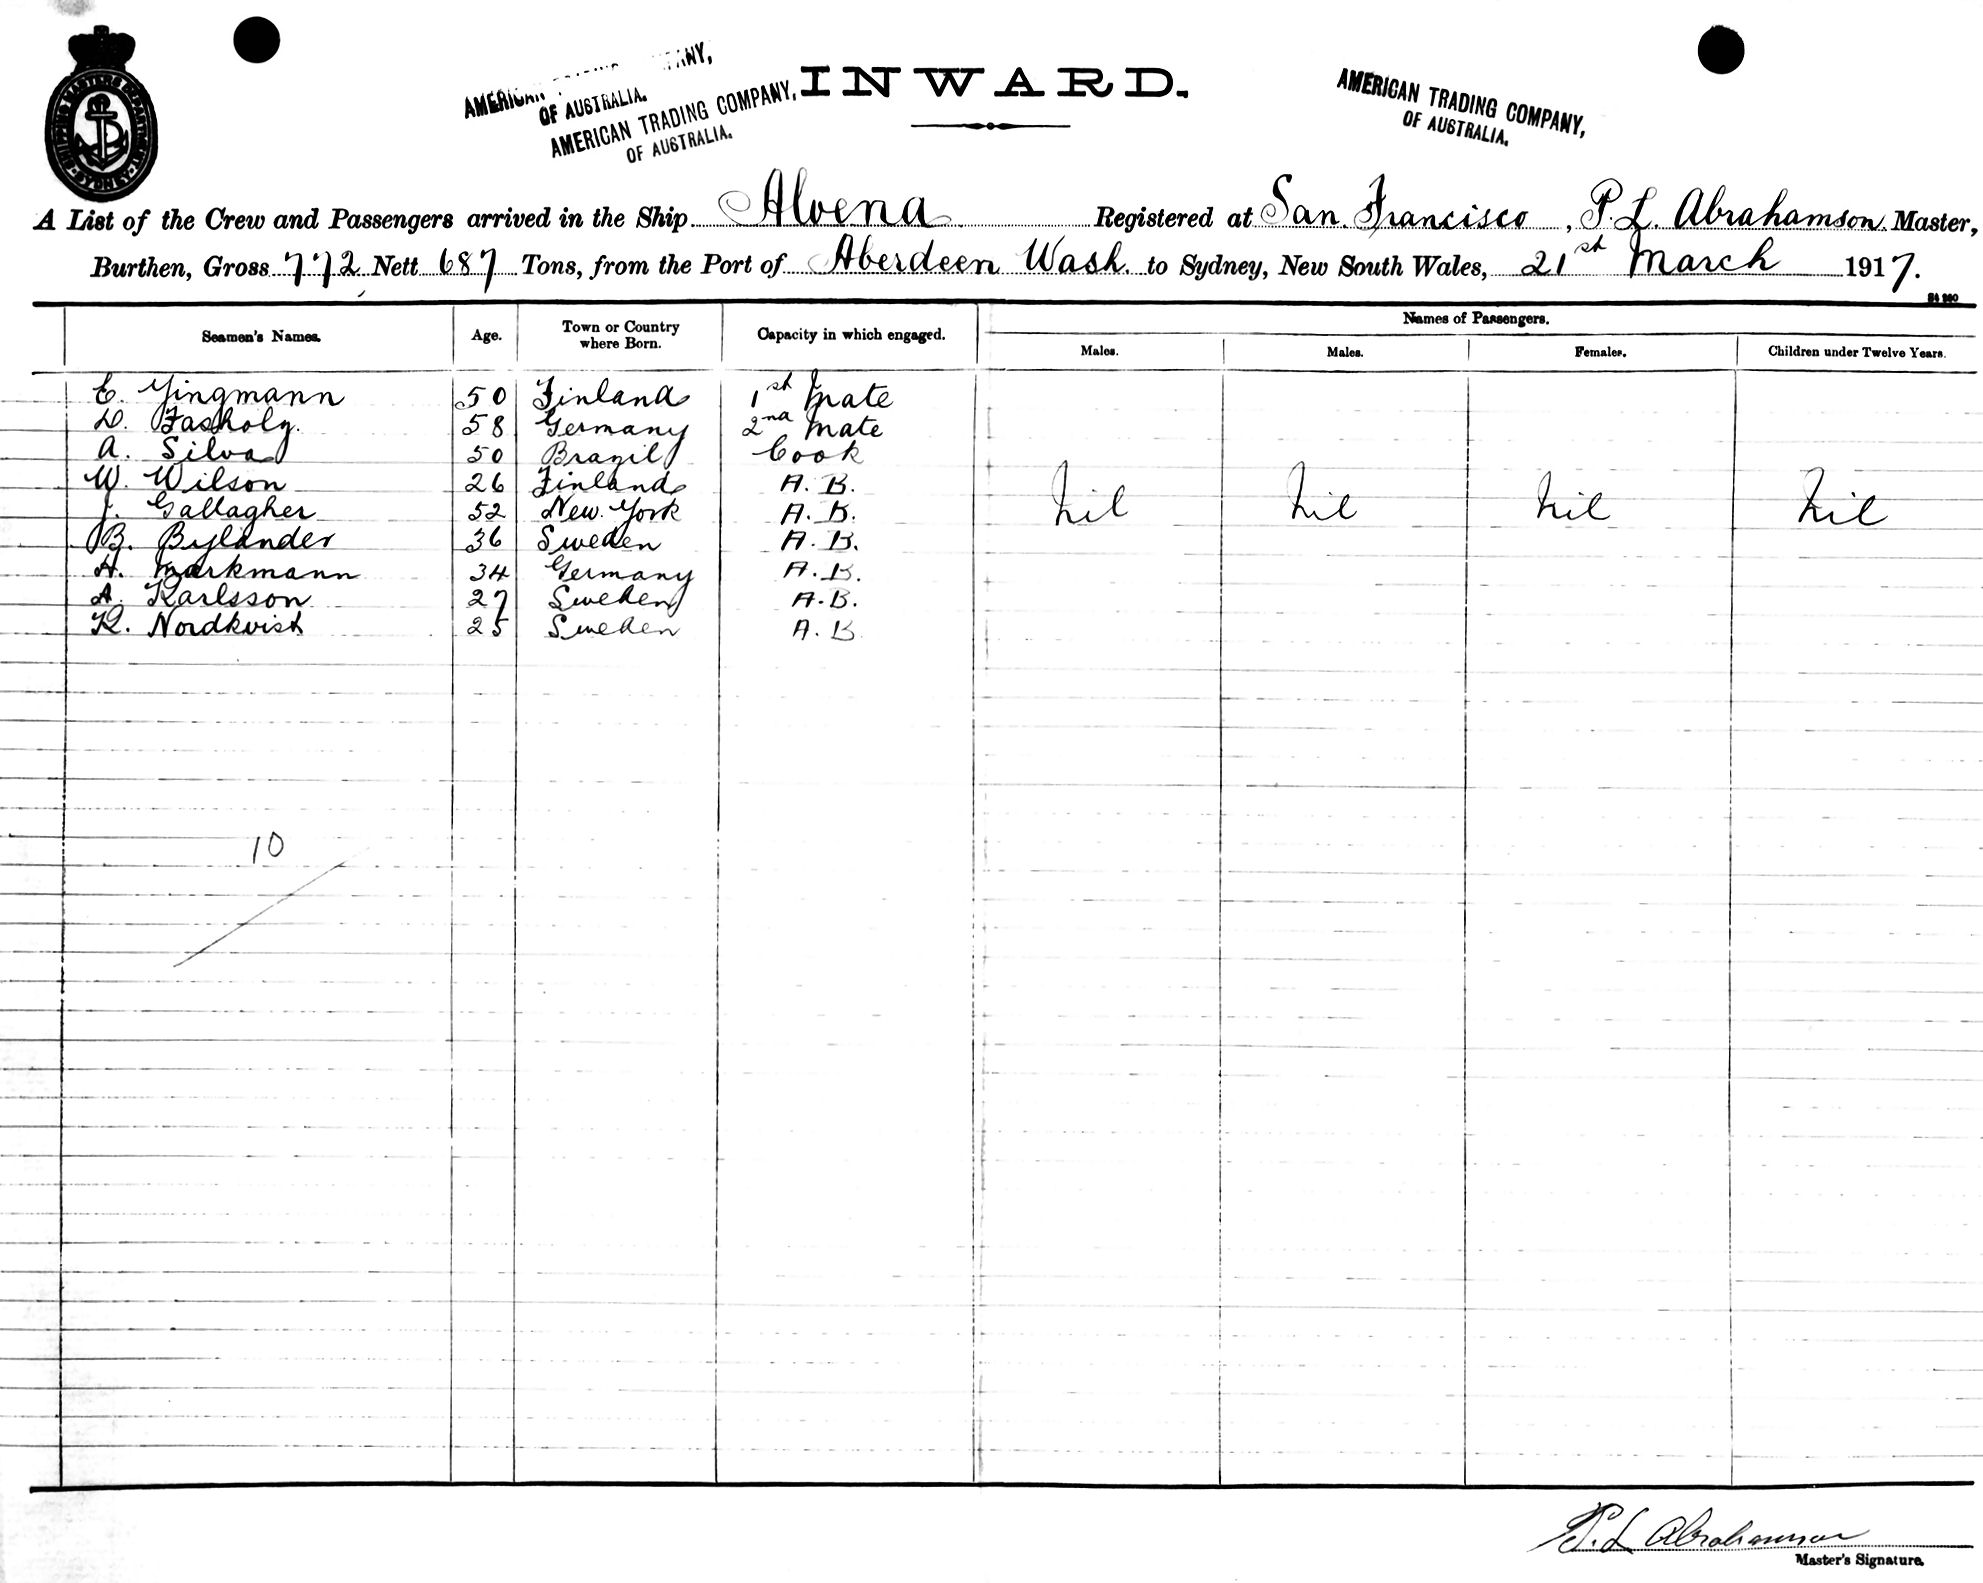 SHIPPING MASTERS DEPARTMENT SYDNEY
AMERICAN TRADING COMPANY,
OF AUSTRALIA.
AMERICAN TRADING COMPANY,
OF AUSTRALIA.
INWARD.
AMERICAN TRADING COMPANY,
OF AUSTRALIA.
A List of the Crew and Passengers arrived in the Ship Alvena Registered at San Francisco, P. L. Abrahamson Master,
Burthen, Gross 772 Nett 687 Tons, from the Port of Aberdeen Wash. to Sydney, New South Wales, 21st March 1917.
Seamen's Names. Age. Town or Country where Born. Capacity in which engaged. Names of Passengers.
Males. Males. Females. Children under Twelve Years.
E. Yingmann 50 Finland 1st Mate
58 Germany 2nd Mate
A. Silva 50 Brazil Cook
W. Wilson 26 Finland A. B.
J. Gallagher 52 New York A. B. Nil Nil Nil Nil
B. Bylander 36 Sweden A. B.
H. Markmann 34 Germany A. B.
A. Karlsson 27 Sweden A. B.
K. Nordkvist 25 Sweden A. B.
10
P. L. Abrahamson
Master's Signature.